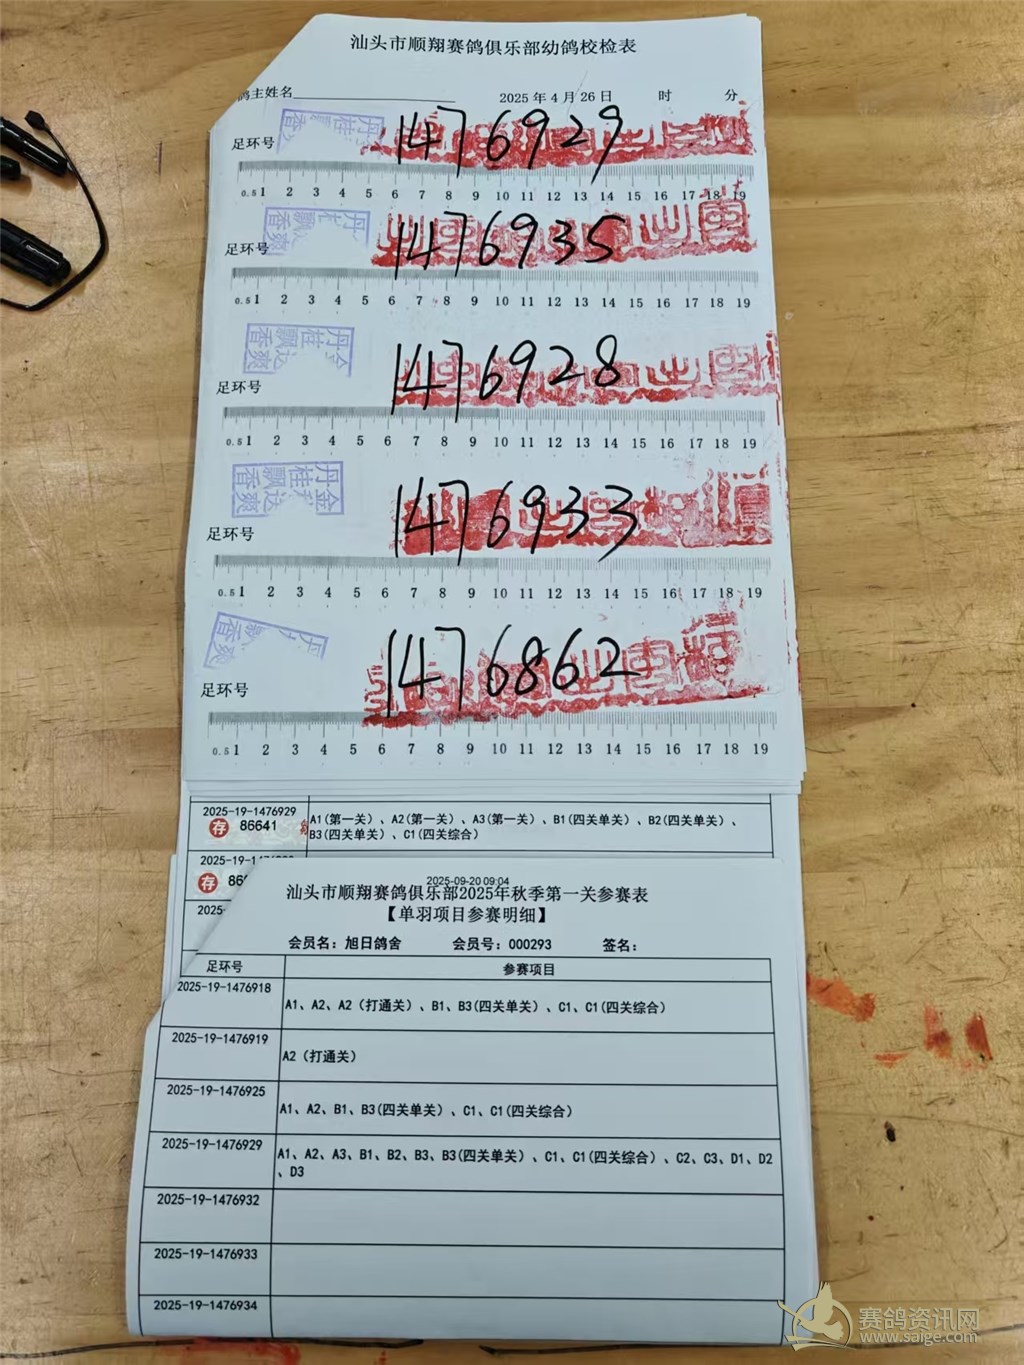 汕头市顺翔赛鸽俱乐部幼鸽校检表
鸽主姓名 2025 年 4 月 26 日 时 分
足环号 1476929
0.5 1 2 3 4 5 6 7 8 9 10 11 12 13 14 15 16 17 18 19
足环号 1476935
0.5 1 2 3 4 5 6 7 8 9 10 11 12 13 14 15 16 17 18 19
丹桂飘香
足环号 1476928
0.5 1 2 3 4 5 6 7 8 9 10 11 12 13 14 15 16 17 18 19
丹桂飘香
足环号 1476933
0.5 1 2 3 4 5 6 7 8 9 10 11 12 13 14 15 16 17 18 19
足环号 1476862
0.5 1 2 3 4 5 6 7 8 9 10 11 12 13 14 15 16 17 18 19
2025-19-1476929
存 86641
A1(第一关)、A2(第一关)、A3(第一关)、B1(四关单关)、B2(四关单关)、
B3(四关单关)、C1(四关综合)
2025-19-
存
2025-
2025-09-20 09:04
汕头市顺翔赛鸽俱乐部2025年秋季第一关参赛表
【单羽项目参赛明细】
会员名：旭日鸽舍 会员号：000293 签名：
足环号 参赛项目
2025-19-1476918 A1、A2、A2（打通关）、B1、B3(四关单关)、C1、C1(四关综合)
2025-19-1476919 A2（打通关）
2025-19-1476925 A1、A2、B1、B3(四关单关)、C1、C1(四关综合)
2025-19-1476929 A1、A2、A3、B1、B2、B3、B3(四关单关)、C1、C1(四关综合)、C2、C3、D1、D2
、D3
2025-19-1476932
2025-19-1476933
2025-19-1476934
赛鸽资讯网
www.saige.com